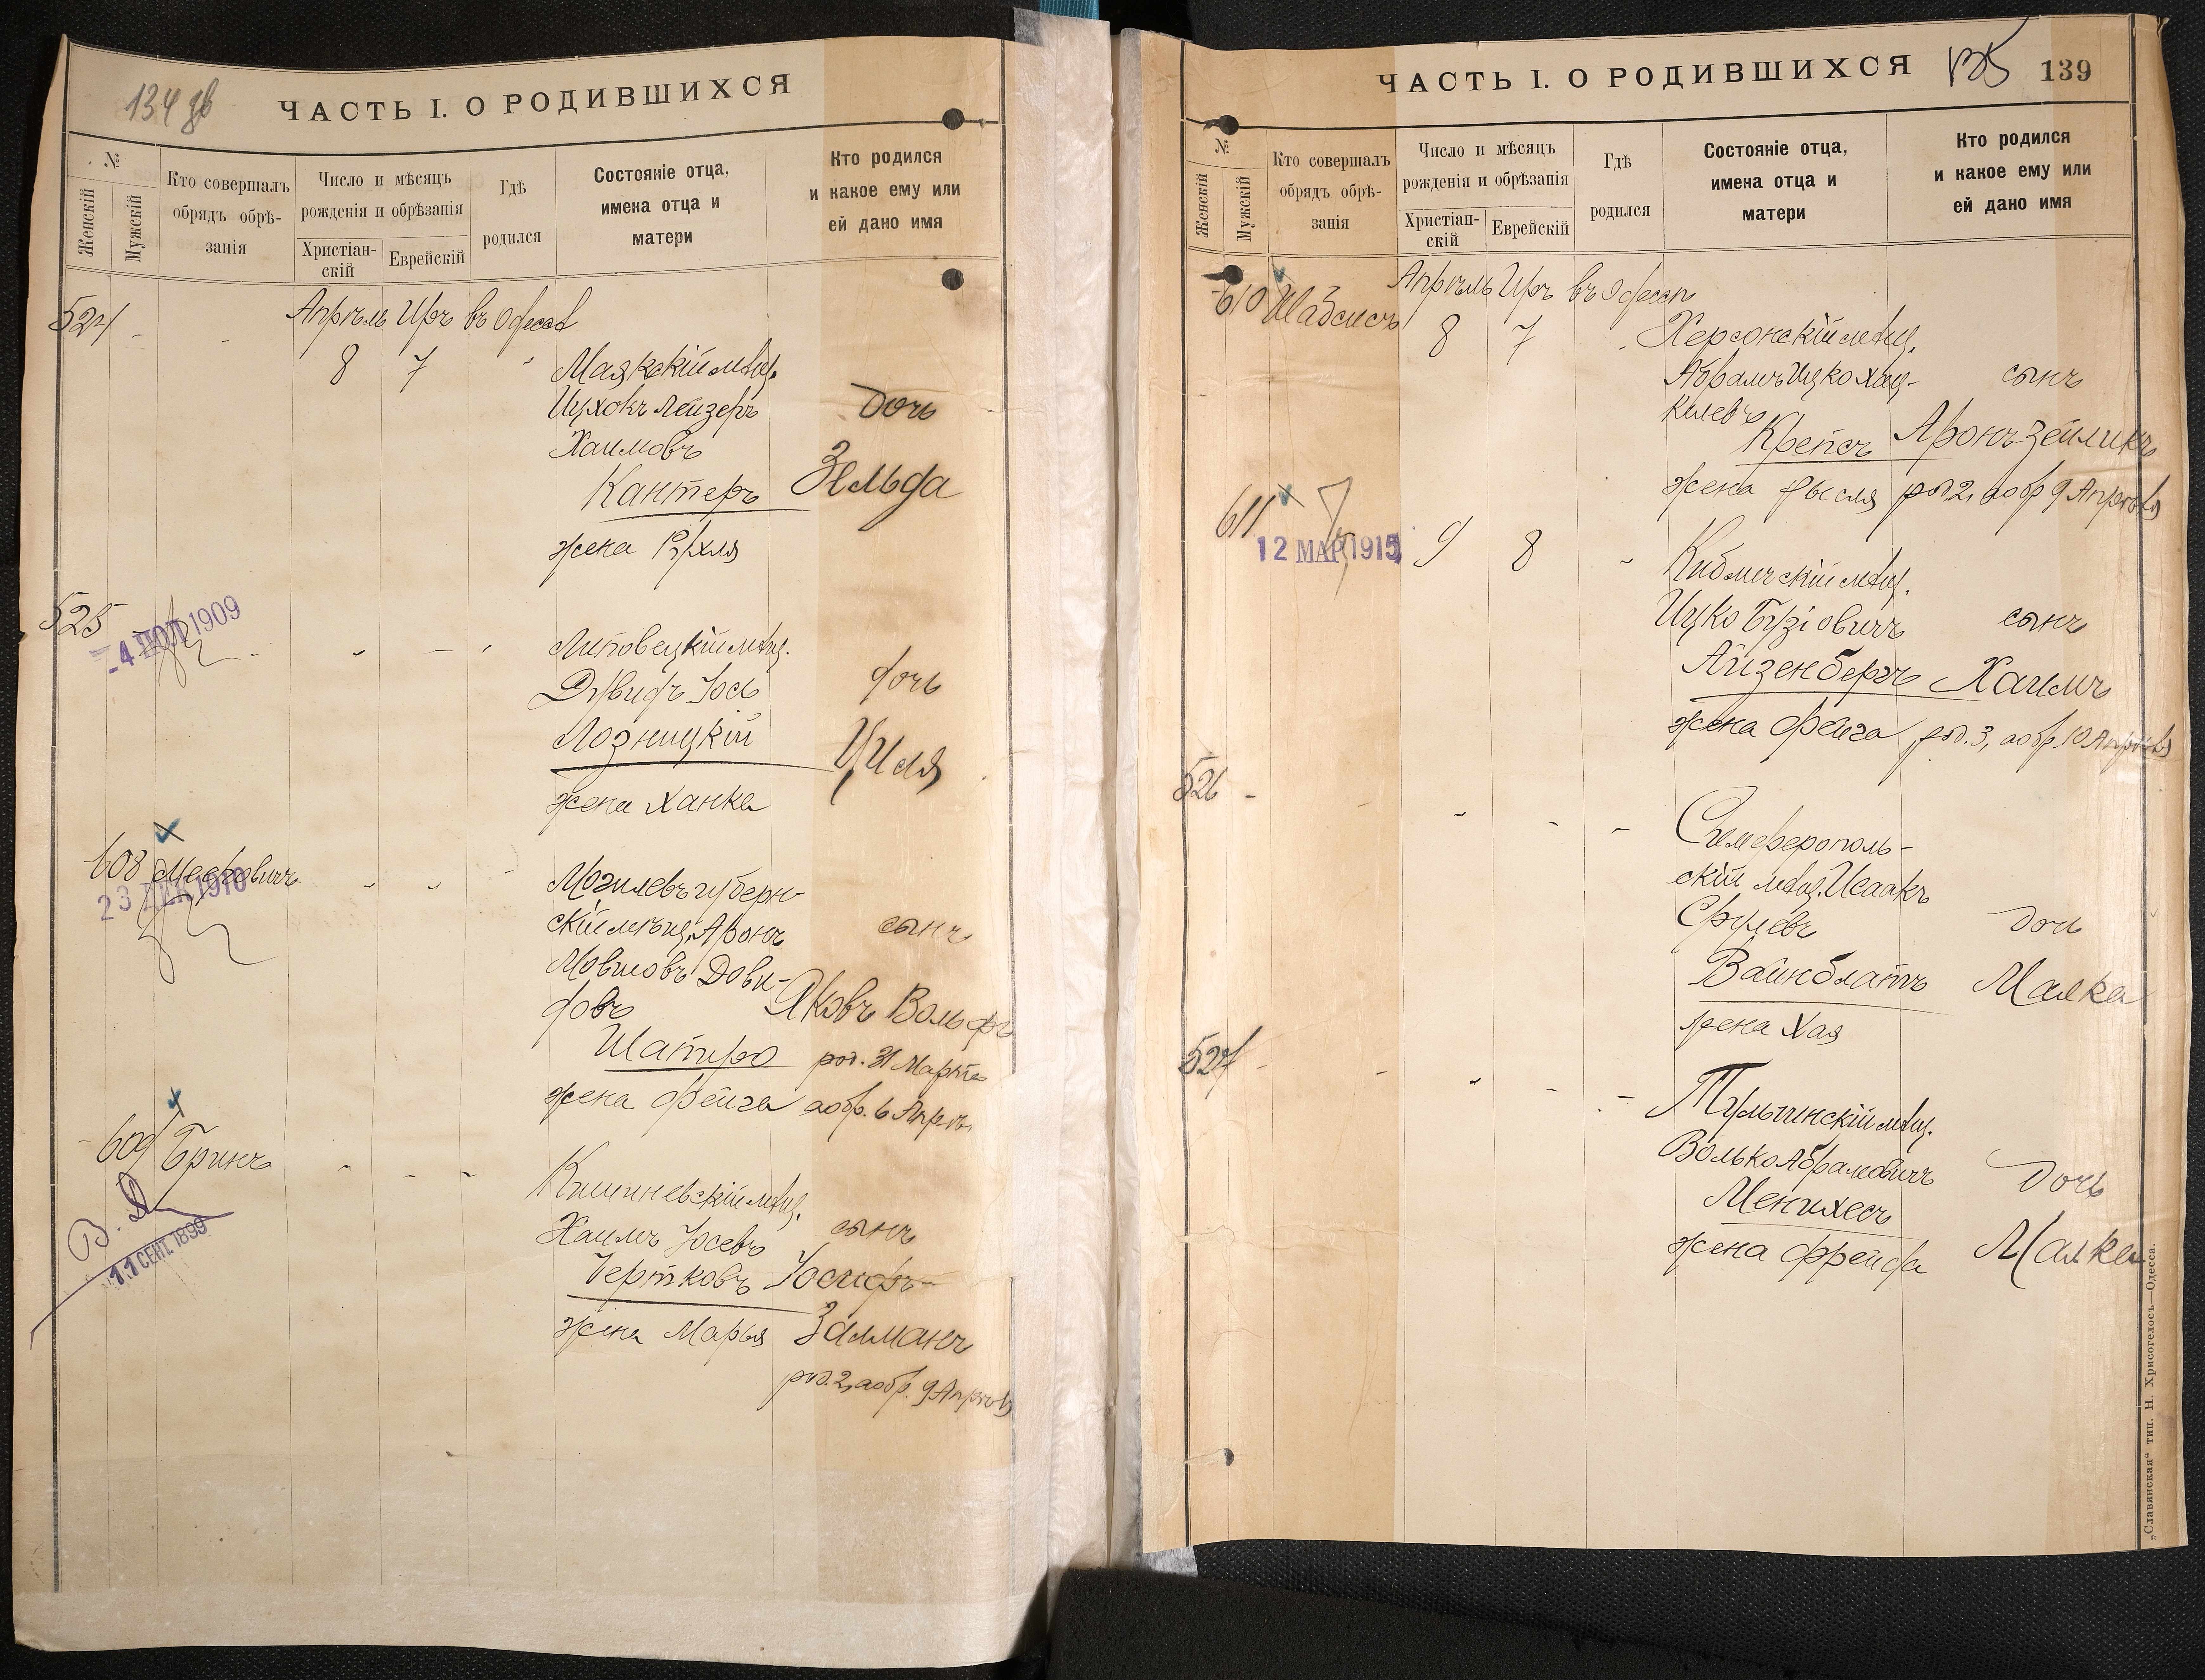 134 об
ЧАСТЬ I. О РОДИВШИХСЯ
№
Женскій
Мужскій
Кто совершалъ
обрядъ обрѣ-
занія
Число и мѣсяцъ
рожденія и обрѣзанія
Христіан-
скій
Еврейскій
Гдѣ
родился
Состояніе отца,
имена отца и
матери
Кто родился
и какое ему или
ей дано имя
524 - - Апрѣль Иръ въ Одессѣ
8 7 Маякскій мѣщ.
Ицхокъ Лейзеръ дочь
Хаимовъ
Кантеръ Зельда
жена Рухля
525
-4 1909
Липовецкій мѣщ.
Давидъ Іось дочь
Лозницкій
Циля
жена Ханка
608
23 ДЕК 1910
Могилевъ губерн-
скій мѣщ. Аронъ сынъ
Мовшовъ Дови-
довъ Яковъ Вольфъ
Шапиро род. 31 Марта
жена Фейга а обр. 6 Апрѣ.
609 Бринъ
В. Д.
11 СЕНТ. 1899
Кишиневскій мѣщ.
Хаимъ Іосевъ сынъ
Чертковъ Іосифъ-
жена Марья Залманъ
род. 2, а обр. 9 Апрѣля
ЧАСТЬ I. О РОДИВШИХСЯ 135 139
№
Женскій
Мужскій
Кто совершалъ
обрядъ обрѣ-
занія
Число и мѣсяцъ
рожденія и обрѣзанія
Христіан-
скій
Еврейскій
Гдѣ
родился
Состояніе отца,
имена отца и
матери
Кто родился
и какое ему или
ей дано имя
610 Шабсисъ Апрѣль Иръ въ Одессѣ
8 7 Херсонскій мѣщ.
Абрамъ Ицко Хац- сынъ
келевъ
Крейсъ Аронъ-Зейликъ
жена род. 2, а обр. 9 Апрѣля
611
12 МАР 1915 9 8 Кубличскій мѣщ.
Ицко Бузіовичъ сынъ
Айзенбергъ Хаимъ
жена Фейга род. 3, а обр. 10 Апрѣля
526 -
Симферополь-
скій мѣщ. Исаакъ
Срулевъ дочь
Вайнблатъ Малка
жена Хая
527 -
Тульчинскій мѣщ.
Волько Абрамовичъ дочь
Менихесъ
жена Фрейда Малка
„Славянская“ тип. Н. Хрисогелосъ—Одесса.